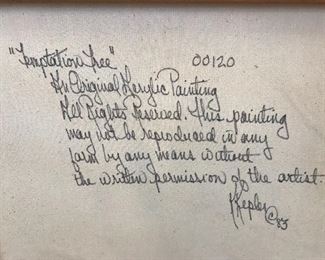 "Temptation Tree" 00120
An Original Acrylic Painting
All Rights Reserved. This painting
may not be reproduced in any
form by any means without
the written permission of the artist.
Kepler ©83